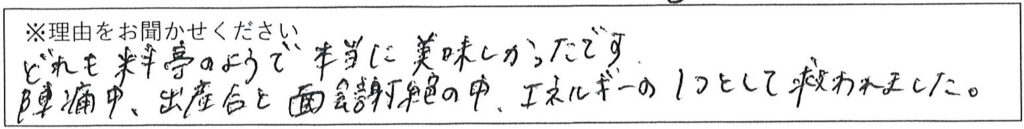 ※理由をお聞かせください
どれも料亭のようで本当に美味しかったです
陣痛中、出産台と面会謝絶の中、エネルギーの1つとして救われました。